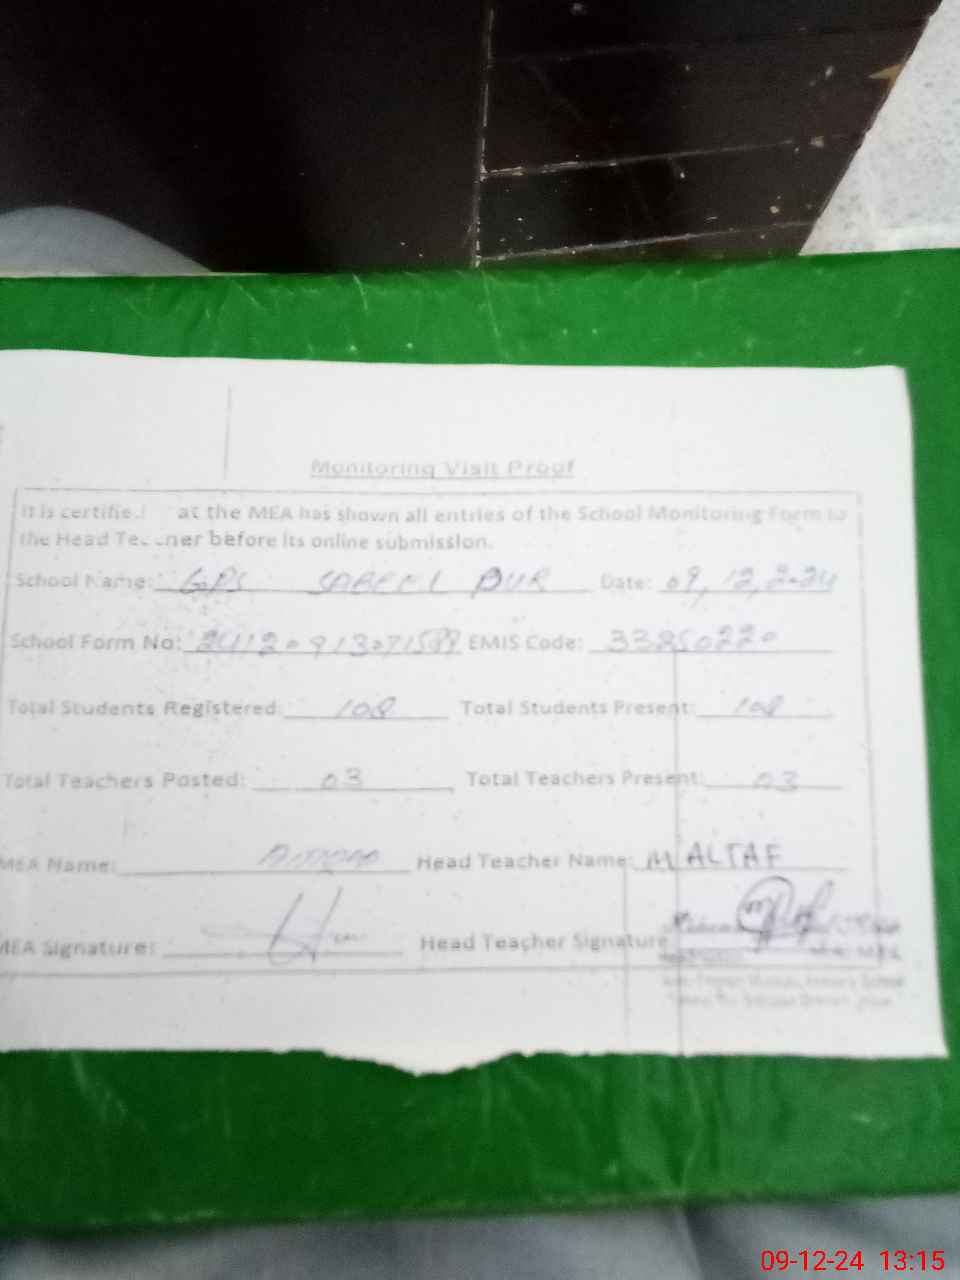 Monitoring Visit Proof
It is certified at the MEA has shown all entries of the School Monitoring Form to
the Head Teacher before its online submission.
School Name: GPS SABEEL PUR Date: 09, 12, 2024
School Form No: EMIS Code: 33250220
Total Students Registered: 108 Total Students Present: 108
Total Teachers Posted: 03 Total Teachers Present: 03
MEA Name: Head Teacher Name: M ALTAF
MEA Signature: Head Teacher Signature
09-12-24 13:15